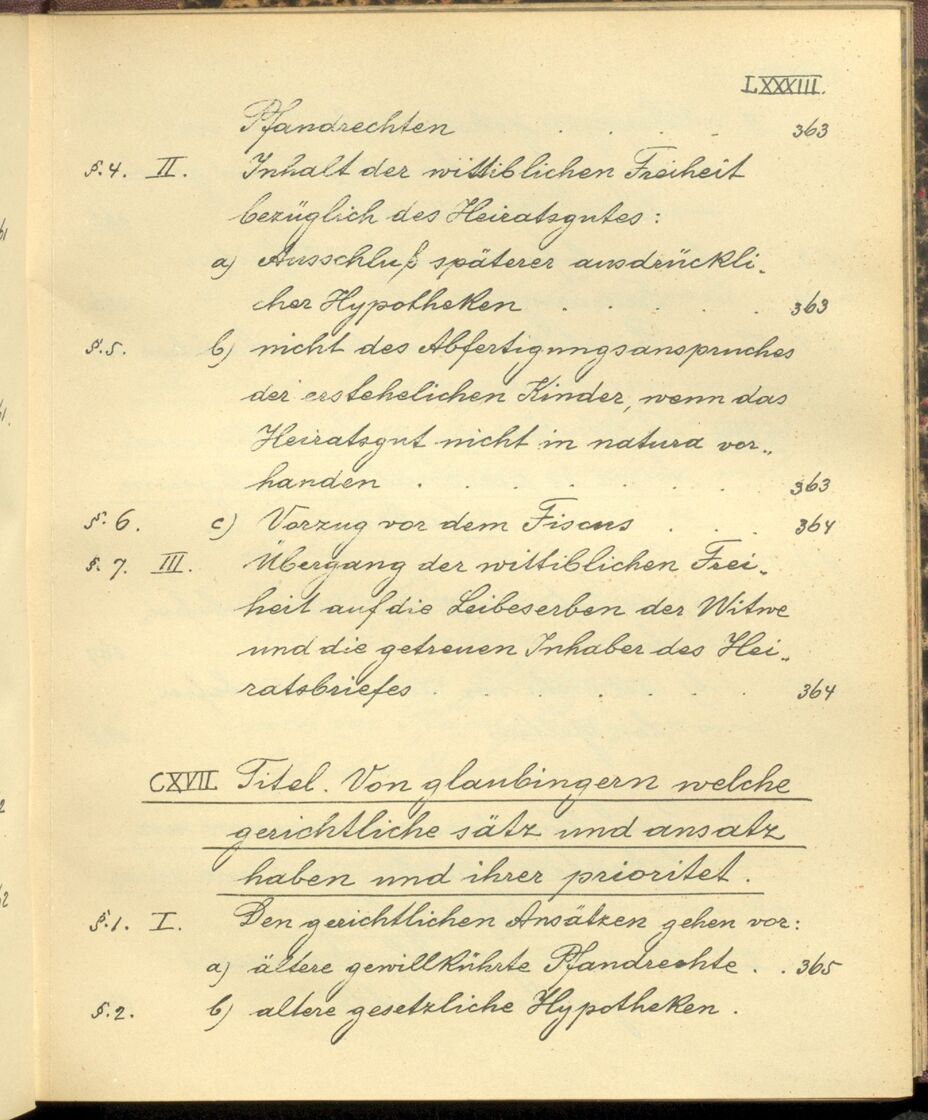 LXXXIII.
Pfandrechten . . . . 363
§.4. II. Inhalt der wittiblichen Freiheit
bezüglich des Heiratsgutes:
a) Ausschluß späterer ausdrückli-
cher Hypotheken . . . . . 363
§.5. b) nicht des Abfertigungsanspruches
der erstehelichen Kinder, wenn das
Heiratsgut nicht in natura vor-
handen . . . . . . . 363
§. 6. c) Vorzug vor dem Fiscus . . . 364
§. 7. III. Übergang der wittiblichen Frei-
heit auf die Leibeserben der Witwe
und die getreuen Inhaber des Hei-
ratsbriefes . . . . 364
CXVII. Titel. Von glaubingern welche
gerichtliche sätz und ansatz
haben und ihrer prioritet.
§.1. I. Den gerichtlichen Ansätzen gehen vor:
a) ältere gewillkührte Pfandrechte . . 365
§.2. b) altere gesetzliche Hypotheken .